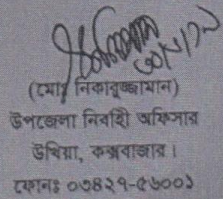 ৩০/১/১২
(মোঃ নিকারুজ্জামান)
উপজেলা নির্বাহী অফিসার
উখিয়া, কক্সবাজার।
ফোনঃ ০৩৪২৭-৫৬০০১